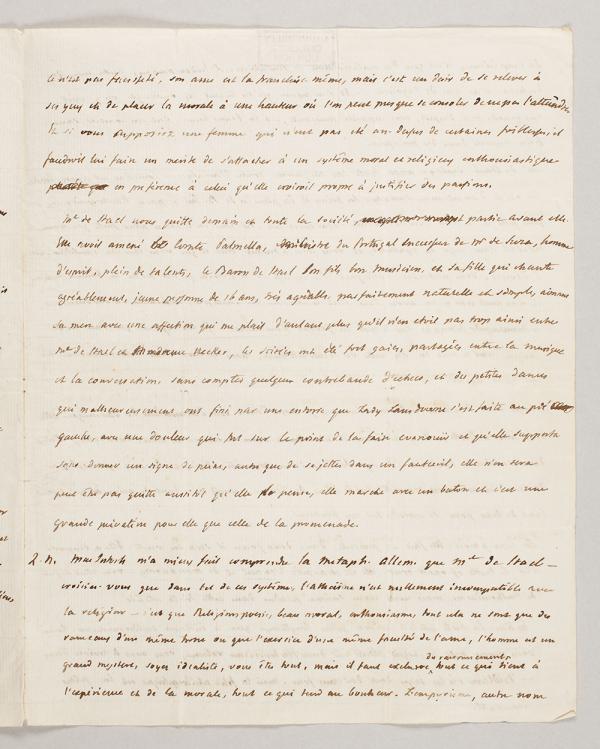 ce n'est pas fausseté, son ame est la franchise même, mais c'est un desir de se relever à
ses yeux et de placer la morale à une hauteur où l'on peut presque se consoler de ne pas l'atteindre
si vous supposiez une femme qui n'eut pas été au-dessus de certaines foiblesses, il
faudroit lui faire un merite de s'attacher à un système moral et religieux enthousiastique
en préference à celui qu'elle croiroit propre à justifier des passions.
Me de Stael nous quitte demain et toute la société, partie avant elle.
avoit amené le Comte Palmella, Ministre du Portugal successeur de Mr de Souza, homme
d'esprit, plein de talents, le Baron de Stael son fils bon musicien, et sa fille qui chante
agréablement, jeune personne de 16 ans, très agréable, parfaitement naturelle et simple, aimant
sa mere avec une affection qui me plait d'autant plus qu'il n'en etoit pas trop ainsi entre
Me de Stael et Madame Necker, les soirées ont été fort gaies, partagées entre la musique
et la conversation, sans compter quelque contrebande d'echecs, et des petites danses
qui malheureusement ont fini par une entorse que Lady Lansdowne s'est faite au pié
gauche, avec une douleur qui fut sur le point de la faire evanouir et qu'elle supporta
sans donner un signe de peine, autre que de se jetter dans un fauteuil, elle n'en sera
peut être pas quitte aussitôt qu'elle pense, elle marche avec un baton et c'est une
grande privation pour elle que celle de la promenade.
2. n. MacIntosh m'a mieux fait comprendre la Metaph. allem. que Me de Stael —
croiriez-vous que dans tel de ces systèmes, l'athéisme n'est nullement incompatible avec
la religion — c'est que Religion, poesie, beau moral, enthousiasme, tout cela ne sont que des
rameaux d'un même tronc ou que l'exercice d'une même faculté de l'ame, l'homme est un
grand mystère, soyez idealiste, vous êtes tout, mais il faut exclure du raisonnement tout ce qui tient à
l'expérience et de la morale, tout ce qui tend au bonheur. L'empyrisme, autre nom